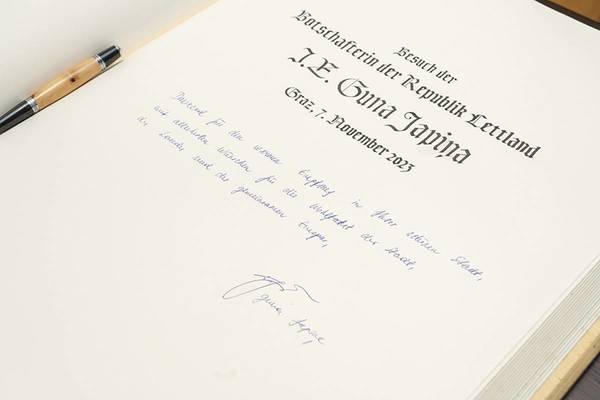 Besuch der
Botschafterin der Republik Lettland
I.E. Guna Japiņa
Graz, 7. November 2023
Dankend für den warmen Empfang in Ihrer schönen Stadt,
mit allerbesten Wünschen für die Wohlfahrt der Stadt,
des Landes und des gemeinsamen Europas,
Guna Japiņa